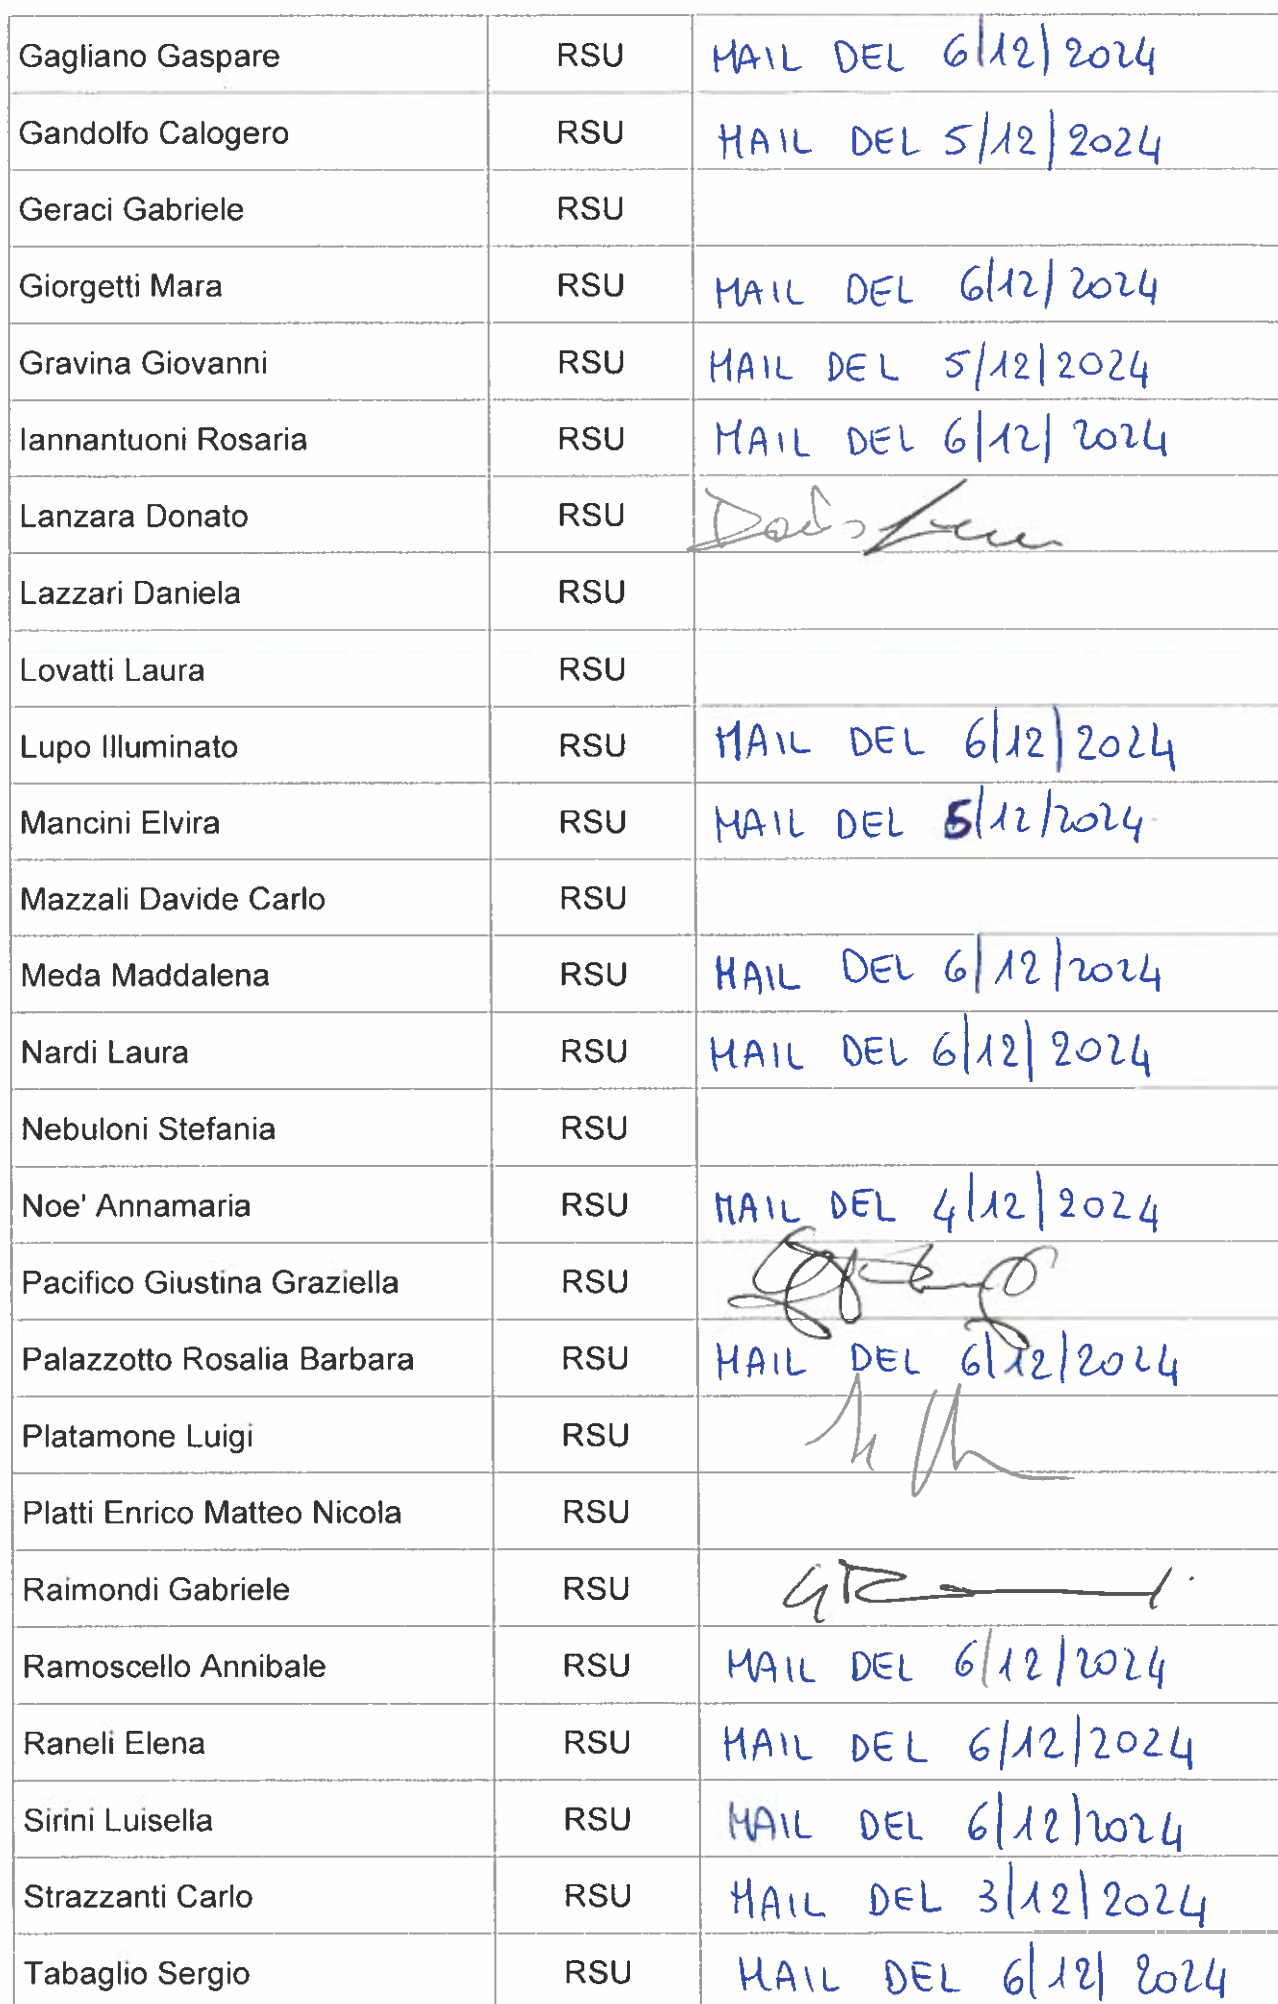 Gagliano Gaspare RSU MAIL DEL 6/12/2024
Gandolfo Calogero RSU MAIL DEL 5/12/2024
Geraci Gabriele RSU
Giorgetti Mara RSU MAIL DEL 6/12/2024
Gravina Giovanni RSU MAIL DEL 5/12/2024
Iannantuoni Rosaria RSU MAIL DEL 6/12/2024
Lanzara Donato RSU
Lazzari Daniela RSU
Lovatti Laura RSU
Lupo Illuminato RSU MAIL DEL 6/12/2024
Mancini Elvira RSU MAIL DEL /12/2024
Mazzali Davide Carlo RSU
Meda Maddalena RSU MAIL DEL 6/12/2024
Nardi Laura RSU MAIL DEL 6/12/2024
Nebuloni Stefania RSU
Noe' Annamaria RSU MAIL DEL 4/12/2024
Pacifico Giustina Graziella RSU
Palazzotto Rosalia Barbara RSU MAIL DEL 6/12/2024
Platamone Luigi RSU
Platti Enrico Matteo Nicola RSU
Raimondi Gabriele RSU
Ramoscello Annibale RSU MAIL DEL 6/12/2024
Raneli Elena RSU MAIL DEL 6/12/2024
Sirini Luisella RSU MAIL DEL 6/12/2024
Strazzanti Carlo RSU MAIL DEL 3/12/2024
Tabaglio Sergio RSU MAIL DEL 6/12/2024